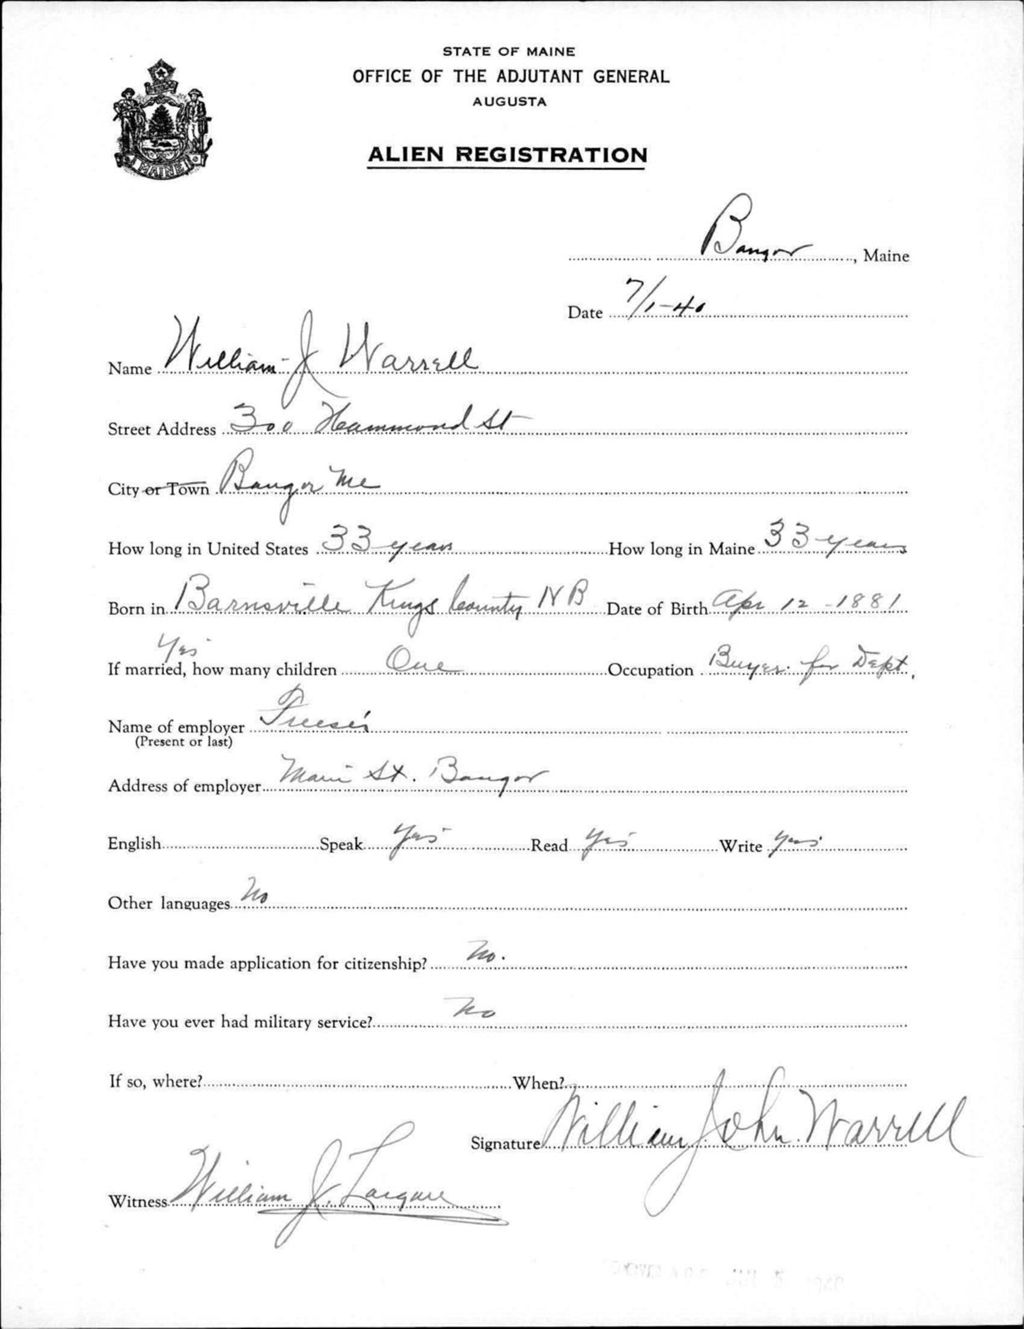 STATE OF MAINE
OFFICE OF THE ADJUTANT GENERAL
AUGUSTA
ALIEN REGISTRATION
MAINE
Bangor, Maine
Date 7/1-40
Name William J Warrell
Street Address 300 Hammond St
City or Town Bangor Me
How long in United States 33 years How long in Maine 33 years
Born in Barnsville Kings County NB Date of Birth Apr 12-1881
Yes
If married, how many children One Occupation Buyer for Dept.
Name of employer Freese's
(Present or last)
Address of employer Main St. Bangor
English Speak Yes Read Yes Write Yes
Other languages No
Have you made application for citizenship? No.
Have you ever had military service? No
If so, where? When?
Signature William John Warrell
Witness William J.